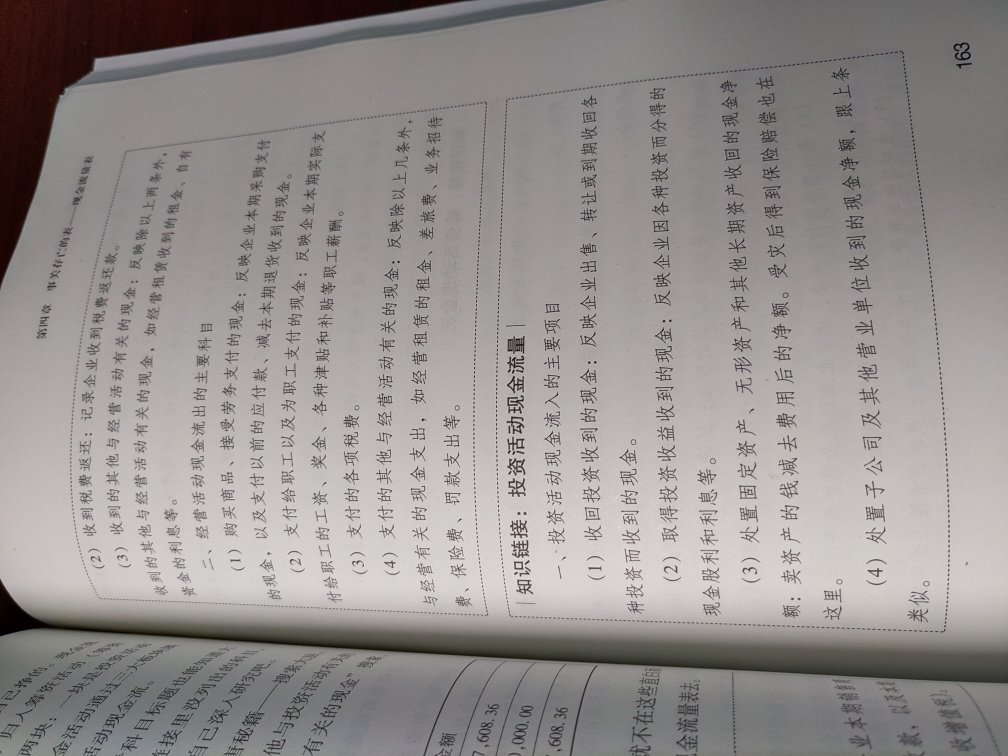 第四章 事关存亡的表——现金流量表
(2) 收到税费返还：记录企业收到税费返还款。
(3) 收到的其他与经营活动有关的现金：反映除以上两条外，
收到的其他与经营活动有关的现金，如经营租赁收到的租金、自有
资金的利息等。
二、经营活动现金流出的主要科目
(1) 购买商品、接受劳务支付的现金：反映企业本期采购支付
的现金，以及支付以前的应付款、减去本期退货收到的现金。
(2) 支付给职工以及为职工支付的现金：反映企业本期实际支
付给职工的工资、奖金、各种津贴和补贴等职工薪酬。
(3) 支付的各项税费。
(4) 支付的其他与经营活动有关的现金：反映除以上几条外，
与经营有关的现金支出，如经营租赁的租金、差旅费、业务招待
费、保险费、罚款支出等。
知识链接：投资活动现金流量
一、投资活动现金流入的主要项目
(1) 收回投资收到的现金：反映企业出售、转让或到期收回各
种投资而收到的现金。
(2) 取得投资收益收到的现金：反映企业因各种投资而分得的
现金股利和利息等。
(3) 处置固定资产、无形资产和其他长期资产收回的现金净
额：卖资产的钱减去费用后的净额。受灾后得到保险赔偿也在
这里。
(4) 处置子公司及其他营业单位收到的现金净额，跟上条
类似。
163
归入筹资活动
两块：一块是投资活动
金活动通过三大板块
活动现金流。
科目标题也能知道
连接里没列出的科目，
自己深入研究吧。
他与投资活动有关的
有关的现金”
金额
7,608.36
,000.00
,608.36
就不在这些直白
金流量表去。
业本期销售
款，以及本
收增值税）；